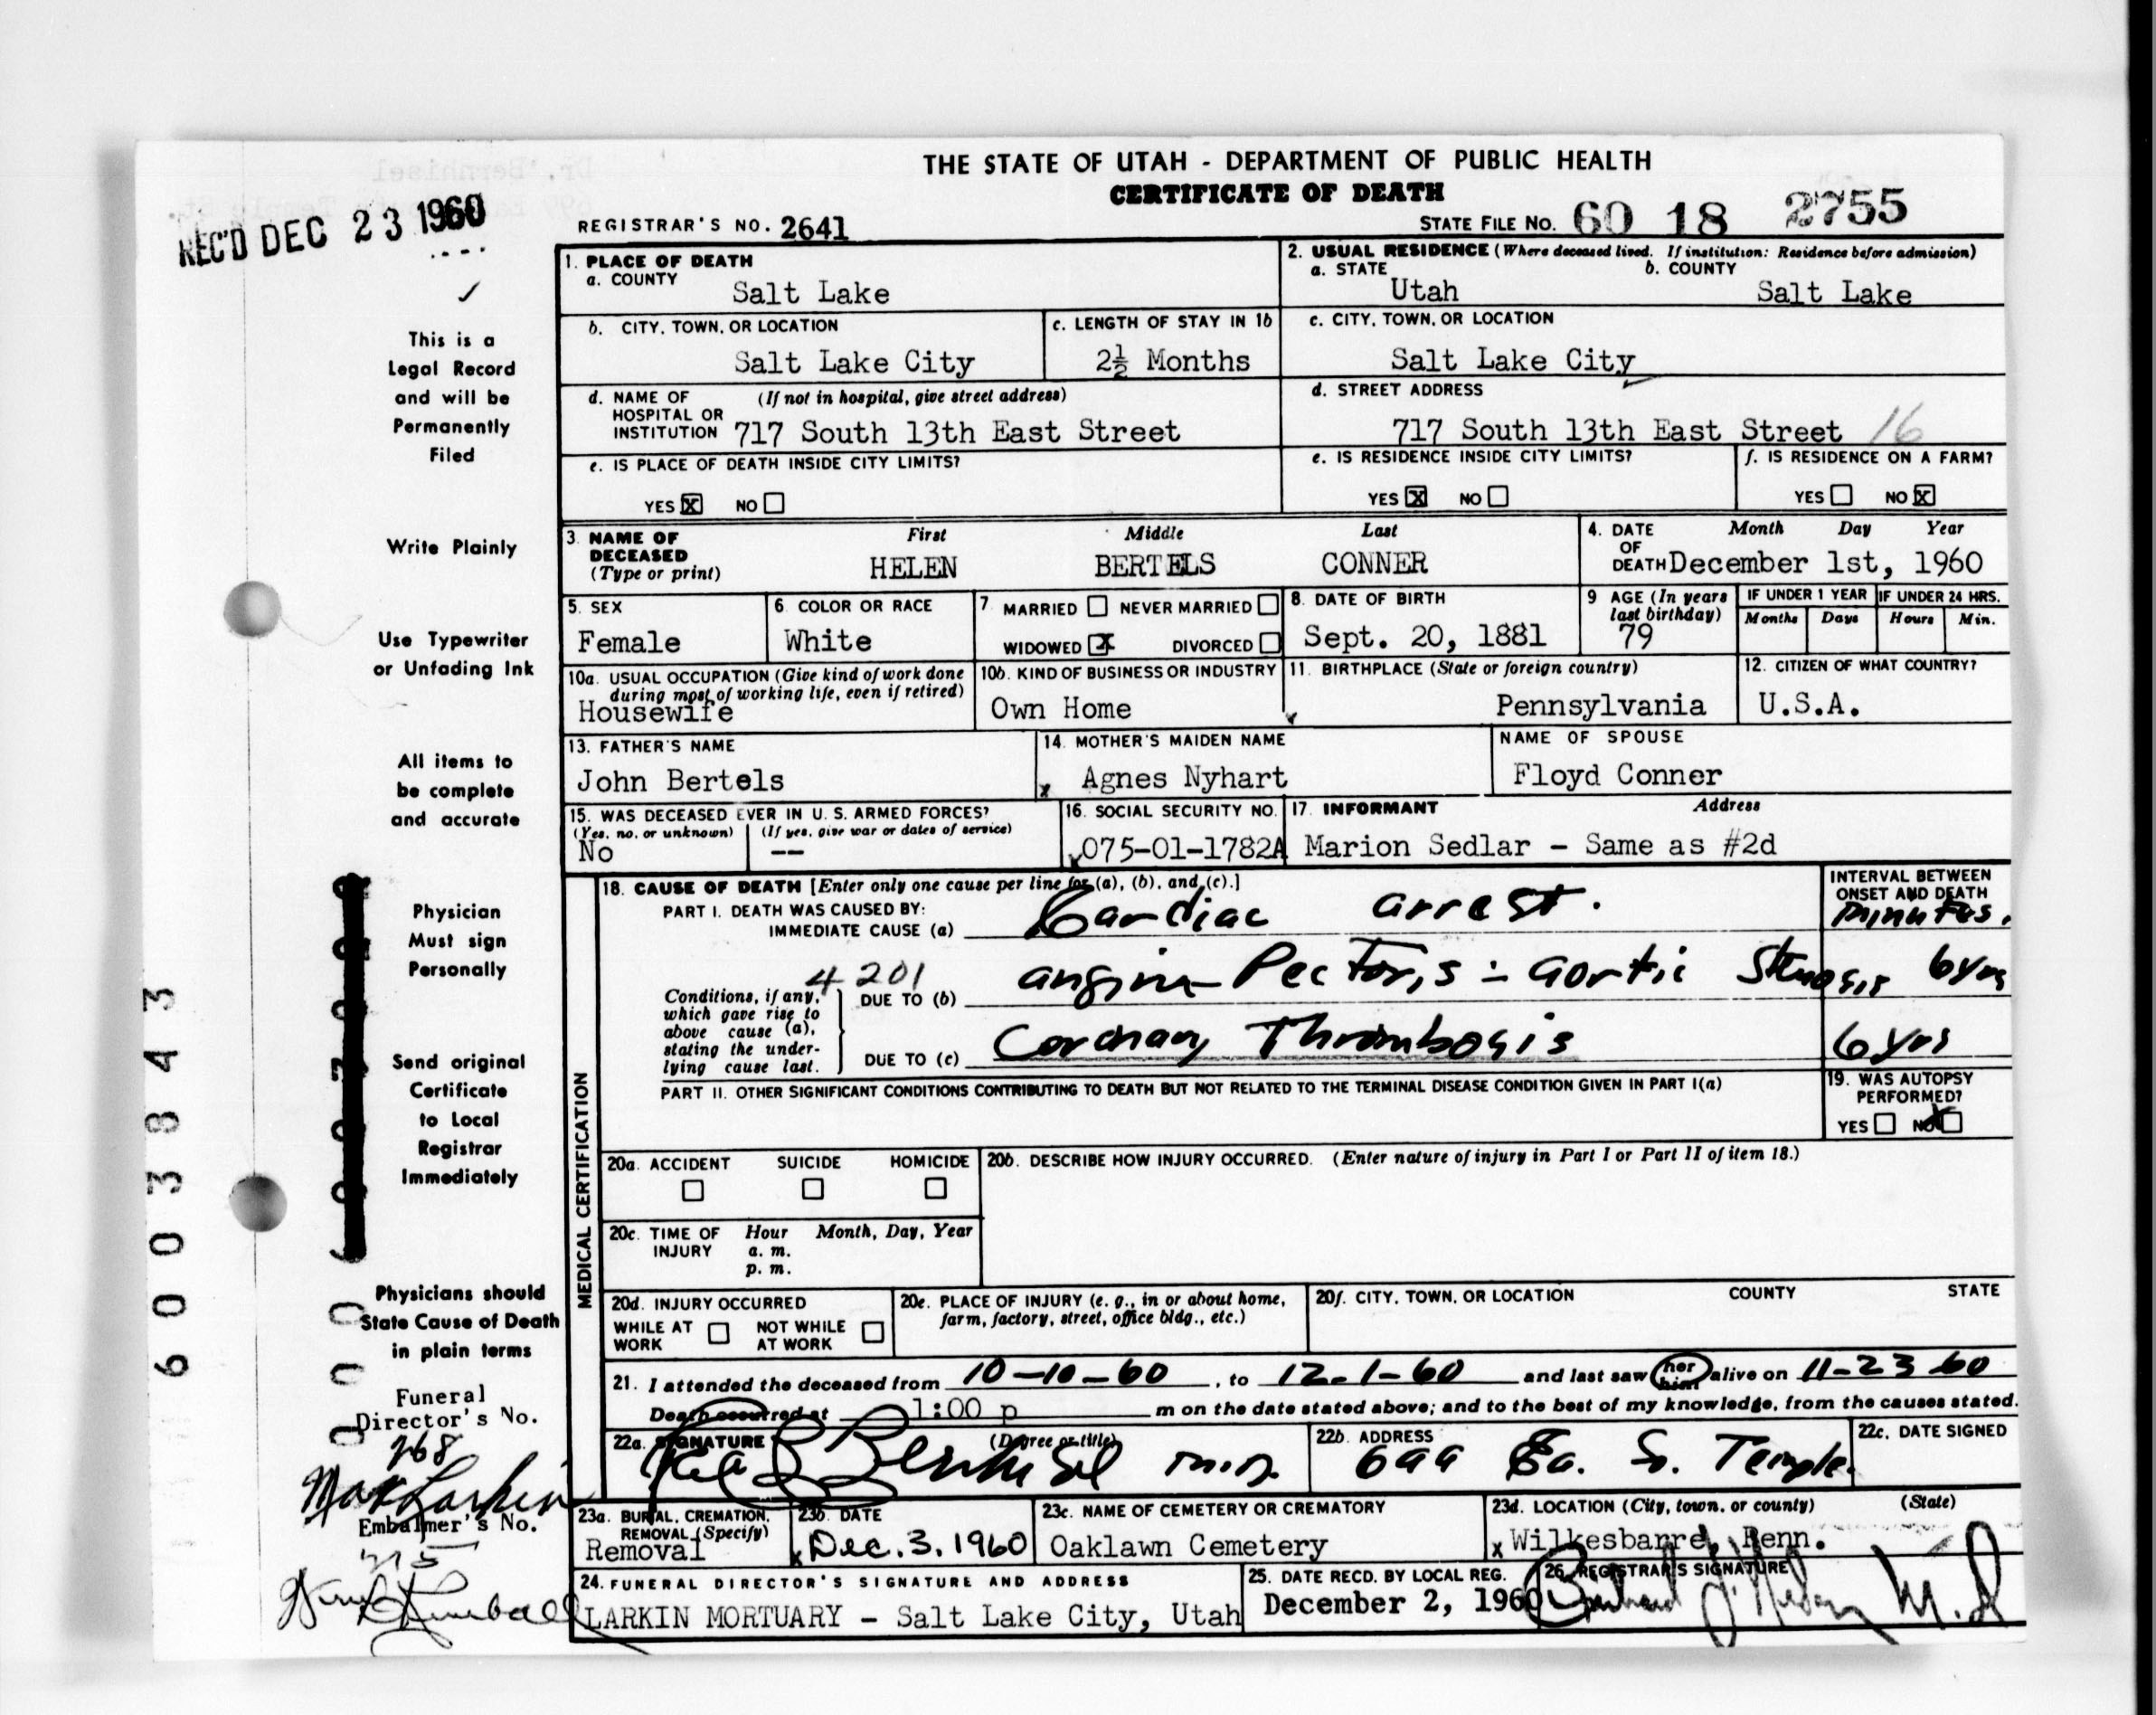 THE STATE OF UTAH - DEPARTMENT OF PUBLIC HEALTH
CERTIFICATE OF DEATH
REC'D DEC 23 1960
REGISTRAR'S NO. 2641
STATE FILE NO. 60 18 2755
1. PLACE OF DEATH
a. COUNTY
Salt Lake
2. USUAL RESIDENCE (Where deceased lived. If institution: Residence before admission)
a. STATE b. COUNTY
Utah Salt Lake
b. CITY, TOWN, OR LOCATION
Salt Lake City
c. LENGTH OF STAY IN 1b
2½ Months
c. CITY, TOWN, OR LOCATION
Salt Lake City
d. NAME OF (If not in hospital, give street address)
HOSPITAL OR
INSTITUTION 717 South 13th East Street
d. STREET ADDRESS
717 South 13th East Street 16
e. IS PLACE OF DEATH INSIDE CITY LIMITS?
YES X NO
e. IS RESIDENCE INSIDE CITY LIMITS?
YES X NO
f. IS RESIDENCE ON A FARM?
YES NO X
3. NAME OF
DECEASED
(Type or print)
First Middle Last
HELEN BERTELS CONNER
4. DATE Month Day Year
OF
DEATH December 1st, 1960
5. SEX
Female
6. COLOR OR RACE
White
7 MARRIED NEVER MARRIED
WIDOWED X DIVORCED
8. DATE OF BIRTH
Sept. 20, 1881
9 AGE (In years
last birthday)
79
IF UNDER 1 YEAR IF UNDER 24 HRS.
Months Days Hours Min.
10a. USUAL OCCUPATION (Give kind of work done
during most of working life, even if retired)
Housewife
10b. KIND OF BUSINESS OR INDUSTRY
Own Home
11. BIRTHPLACE (State or foreign country)
Pennsylvania
12. CITIZEN OF WHAT COUNTRY?
U.S.A.
13. FATHER'S NAME
John Bertels
14. MOTHER'S MAIDEN NAME
x Agnes Nyhart
NAME OF SPOUSE
Floyd Conner
15. WAS DECEASED EVER IN U. S. ARMED FORCES?
(Yes, no, or unknown) (If yes, give war or dates of service)
No --
16. SOCIAL SECURITY NO.
x 075-01-1782A
17. INFORMANT Address
Marion Sedlar - Same as #2d
MEDICAL CERTIFICATION
18. CAUSE OF DEATH [Enter only one cause per line for (a), (b), and (c).]
PART I. DEATH WAS CAUSED BY:
IMMEDIATE CAUSE (a) Cardiac arrest.
INTERVAL BETWEEN
ONSET AND DEATH
minutes.
4201
Conditions, if any,
which gave rise to
above cause (a),
stating the under-
lying cause last.
DUE TO (b) angina Pectoris - aortic Stenosis 6 yrs
DUE TO (c) Coronary Thrombosis 6 yrs
PART II. OTHER SIGNIFICANT CONDITIONS CONTRIBUTING TO DEATH BUT NOT RELATED TO THE TERMINAL DISEASE CONDITION GIVEN IN PART I(a)
19. WAS AUTOPSY
PERFORMED?
YES NO X
20a. ACCIDENT SUICIDE HOMICIDE
20b. DESCRIBE HOW INJURY OCCURRED. (Enter nature of injury in Part I or Part II of item 18.)
20c. TIME OF Hour Month, Day, Year
INJURY a. m.
p. m.
20d. INJURY OCCURRED
WHILE AT NOT WHILE
WORK AT WORK
20e. PLACE OF INJURY (e. g., in or about home,
farm, factory, street, office bldg., etc.)
20f. CITY, TOWN, OR LOCATION COUNTY STATE
21. I attended the deceased from 10-10-60, to 12-1-60 and last saw her him alive on 11-23 60
Death occurred at 1:00 p m on the date stated above; and to the best of my knowledge, from the causes stated.
22a. SIGNATURE (Degree or title)
Bernhisel M.D.
22b. ADDRESS
699 Ea. So. Temple.
22c. DATE SIGNED
23a. BURIAL, CREMATION,
REMOVAL (Specify)
Removal
23b. DATE
x Dec. 3. 1960
23c. NAME OF CEMETERY OR CREMATORY
Oaklawn Cemetery
23d. LOCATION (City, town, or county) (State)
x Wilkesbarre, Penn.
24. FUNERAL DIRECTOR'S SIGNATURE AND ADDRESS
LARKIN MORTUARY - Salt Lake City, Utah
25. DATE RECD. BY LOCAL REG.
December 2, 1960
26. REGISTRAR'S SIGNATURE
M.D
This is a
Legal Record
and will be
Permanently
Filed
Write Plainly
Use Typewriter
or Unfading Ink
All items to
be complete
and accurate
Physician
Must sign
Personally
Send original
Certificate
to Local
Registrar
Immediately
Physicians should
State Cause of Death
in plain terms
Funeral
Director's No.
268
Max Larkin
Embalmer's No.
Kimball
6003843